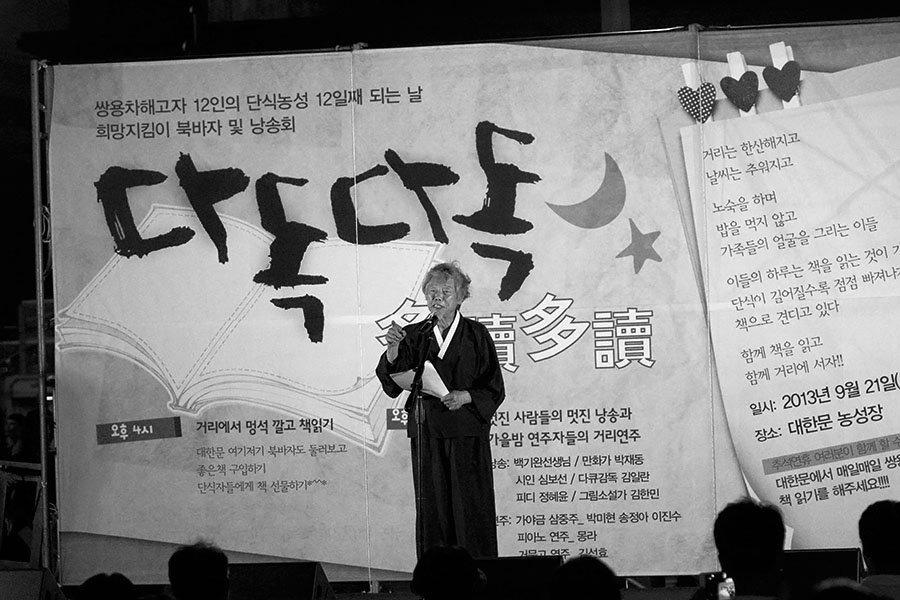 쌍용차해고자 12인의 단식농성 12일째 되는 날
희망지킴이 북바자 및 낭송회
다독다독
多讀多讀
오후 4시
거리에서 멍석 깔고 책읽기
대한문 여기저기 북바자도 둘러보고
좋은책 구입하기
단식자들에게 책 선물하기*^^*
오후
멋진 사람들의 멋진 낭송과
가을밤 연주자들의 거리연주
낭송: 백기완선생님 / 만화가 박재동
시인 심보선 / 다큐감독 김일란
피디 정혜윤 / 그림소설가 김한민
연주: 가야금 삼중주_ 박미현 송정아 이진수
피아노 연주_ 몽라
거문고 연주_ 김선효
거리는 한산해지고
날씨는 추워지고
노숙을 하며
밥을 먹지 않고
가족들의 얼굴을 그리는 이들
이들의 하루는 책을 읽는 것이
단식이 깊어질수록 점점 빠져나가
책으로 견디고 있다
함께 책을 읽고
함께 거리에 서자!!
일시: 2013년 9월 21일(
장소: 대한문 농성장
추석연휴 여러분이 함께 할 수
대한문에서 매일매일 쌍용
책 읽기를 해주세요!!!!